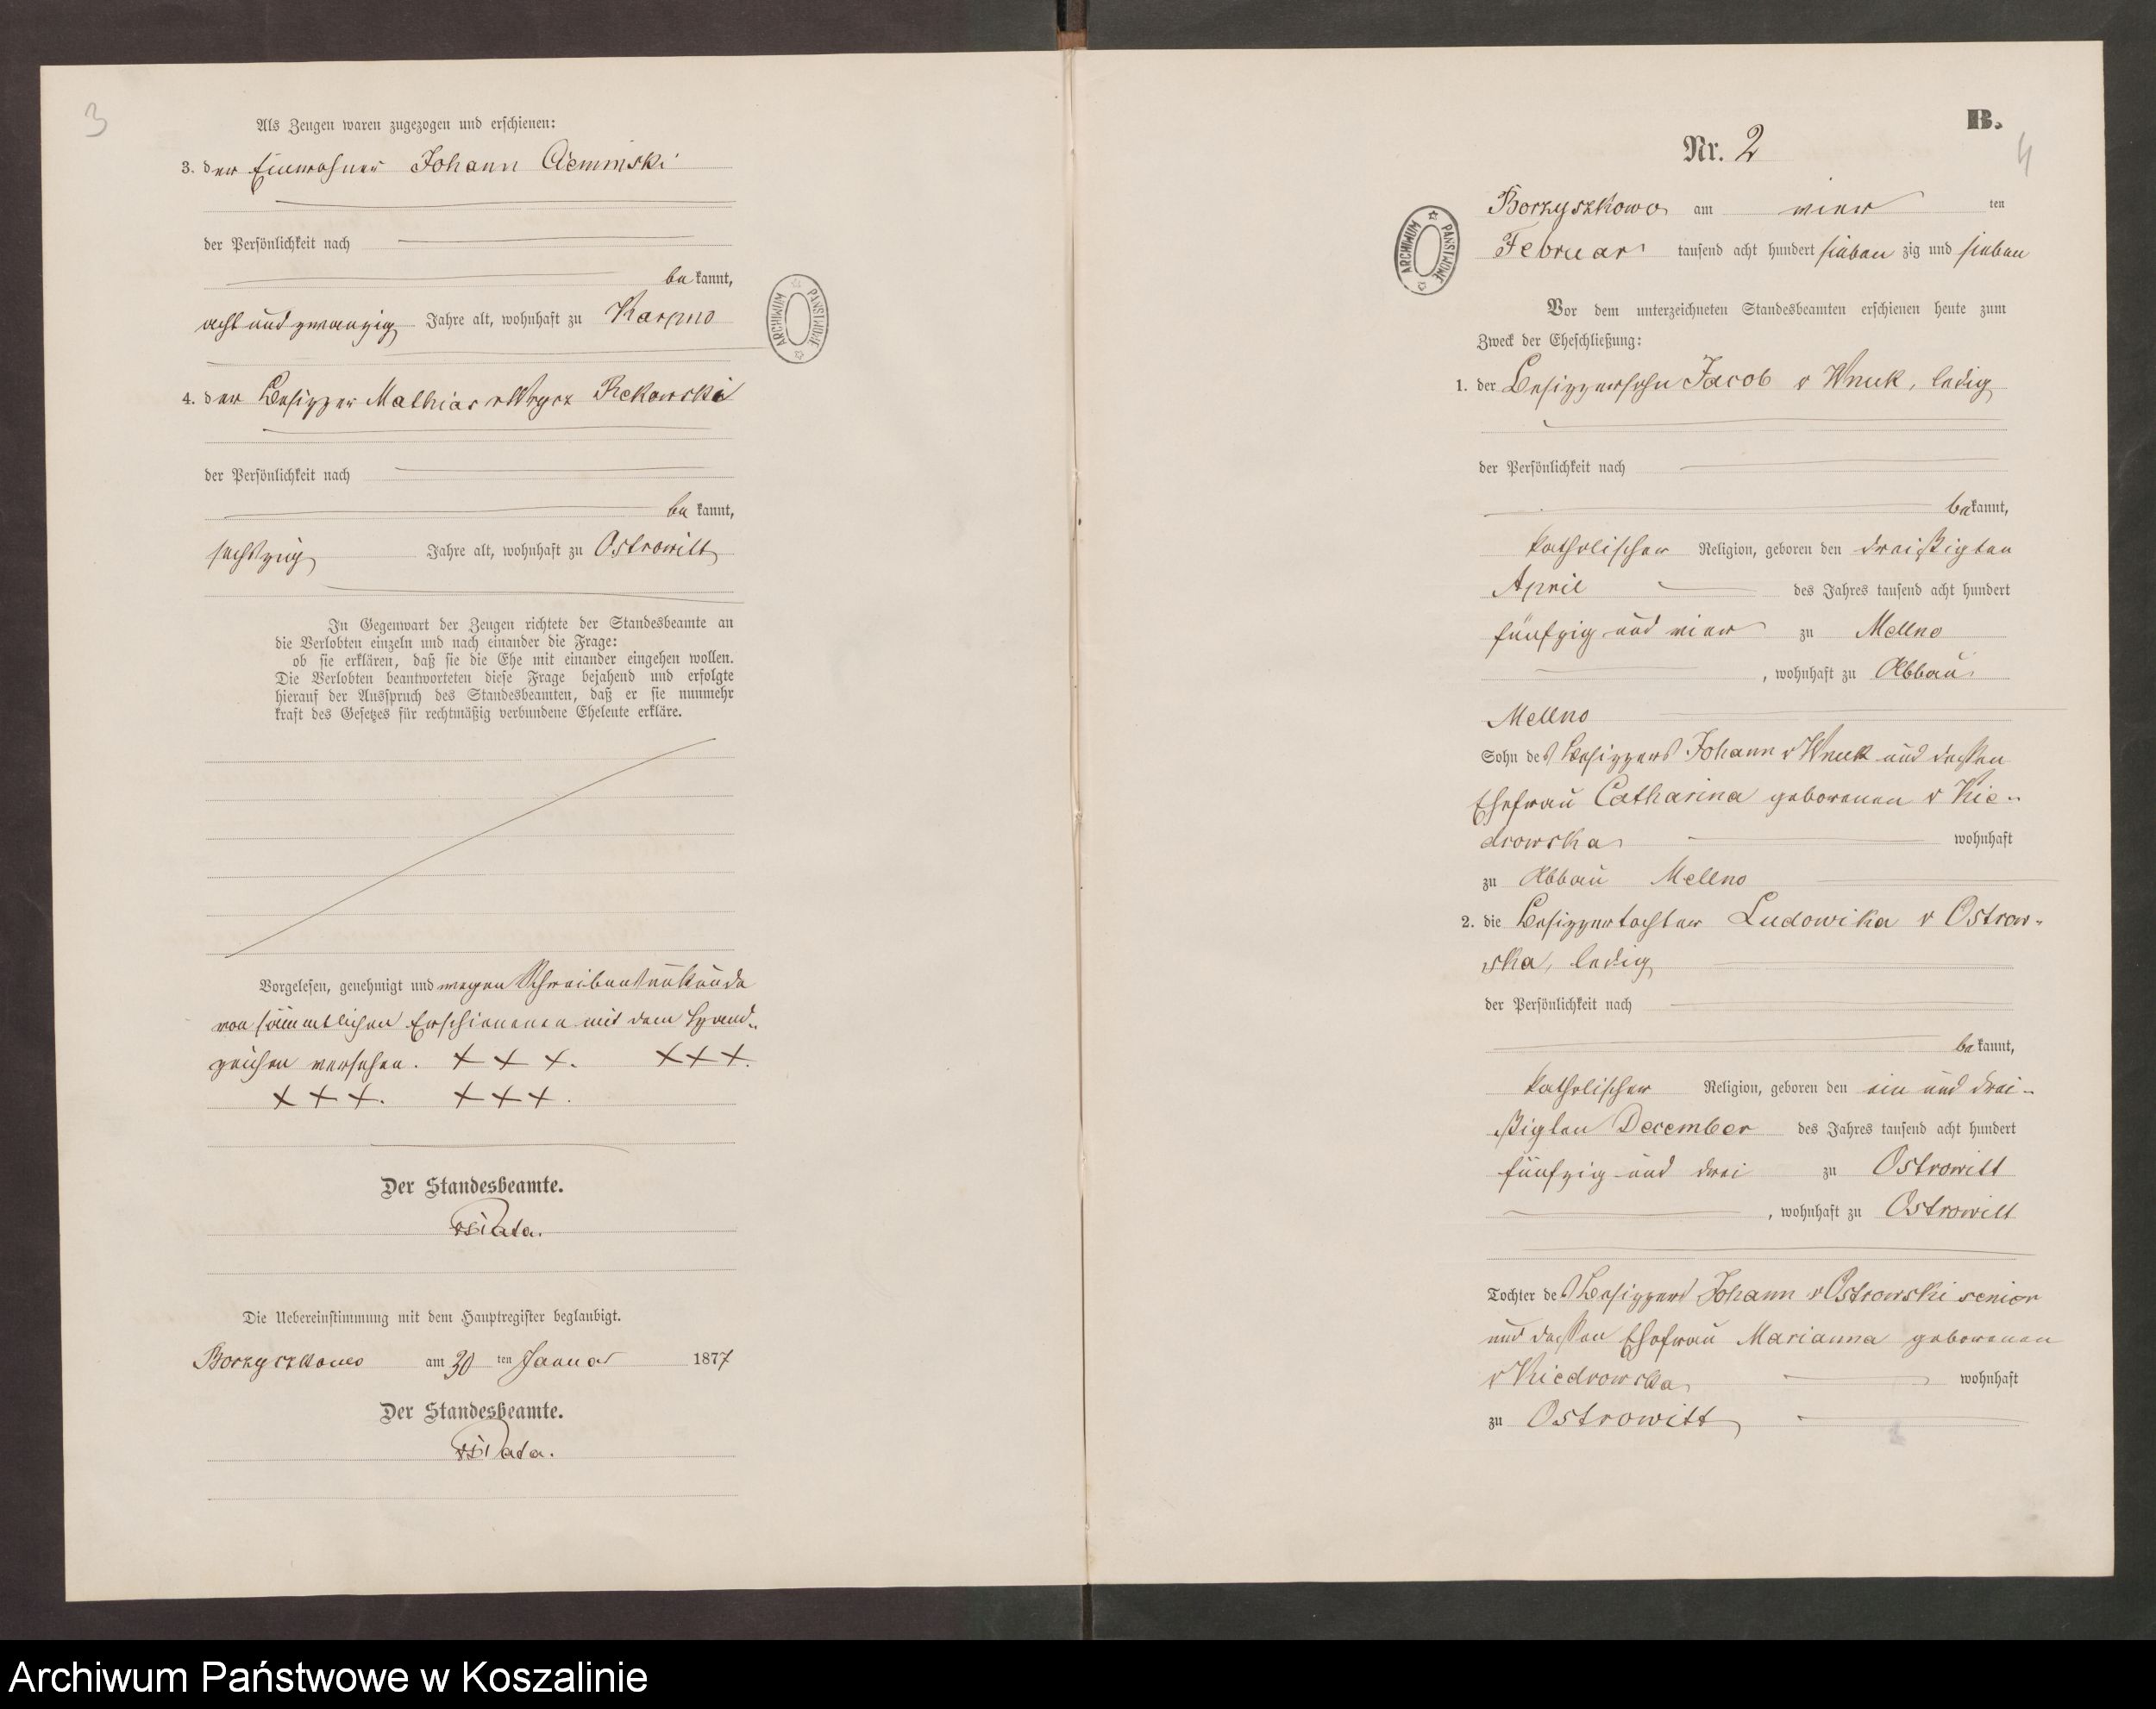 3
Als Zeugen waren zugezogen und erschienen:
3. der Einwohner Johann Cieminski
der Persönlichkeit nach
be kannt,
acht und zwanzig Jahre alt, wohnhaft zu Karpno
4. der Besitzer Mathias v Wrycz Rekowski
der Persönlichkeit nach
be kannt,
sechszig Jahre alt, wohnhaft zu Ostrowitt
In Gegenwart der Zeugen richtete der Standesbeamte an
die Verlobten einzeln und nach einander die Frage:
ob sie erklären, daß sie die Ehe mit einander eingehen wollen.
Die Verlobten beantworteten diese Frage bejahend und erfolgte
hierauf der Ausspruch des Standesbeamten, daß er sie nunmehr
kraft des Gesetzes für rechtmäßig verbundene Eheleute erkläre.
Vorgelesen, genehmigt und wegen Schreibensunkunde
von sämmtlichen Erschienenen mit dem Hand-
zeichen versehen. + + +. +++.
+ + +. +++.
Der Standesbeamte.
Die Uebereinstimmung mit dem Hauptregister beglaubigt.
Borzyszkowo am 30 ten Januar 1877
Der Standesbeamte.
ARCHIWUM PAŃSTWOWE
B.
Nr. 2
4
Borzyszkowo am vier ten
Februar tausend acht hundert sieben zig und sieben
ARCHIWUM PAŃSTWOWE
Vor dem unterzeichneten Standesbeamten erschienen heute zum
Zweck der Eheschließung:
1. der Besitzersohn Jacob v Wnuk, ledig
der Persönlichkeit nach
be kannt,
katholischer Religion, geboren den dreißigten
April des Jahres tausend acht hundert
fünfzig und vier zu Mellno
, wohnhaft zu Abbau
Mellno
Sohn des Besitzers Johann v Wnuk und dessen
Ehefrau Catharina geborenen v Kie-
drowska wohnhaft
zu Abbau Mellno
2. die Besitzertochter Ludowika v Ostrow-
ska, ledig
der Persönlichkeit nach
be kannt,
katholischer Religion, geboren den ein und drei-
ßigten December des Jahres tausend acht hundert
fünfzig und drei zu Ostrowitt
, wohnhaft zu Ostrowitt
Tochter des Besitzers Johann v Ostrowski senior
und dessen Ehefrau Marianna geborenen
v Kiedrowska wohnhaft
zu Ostrowitt
Archiwum Państwowe w Koszalinie